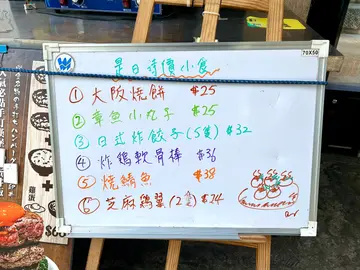 70X50
是日特價小食
① 大阪燒餅 $25
② 章魚小丸子 $25
③ 日式炸餃子(5隻) $32
④ 炸鷄軟骨棒 $36
⑤ 燒鯖魚 $38
⑥ 芝麻鷄翼(2隻) $24